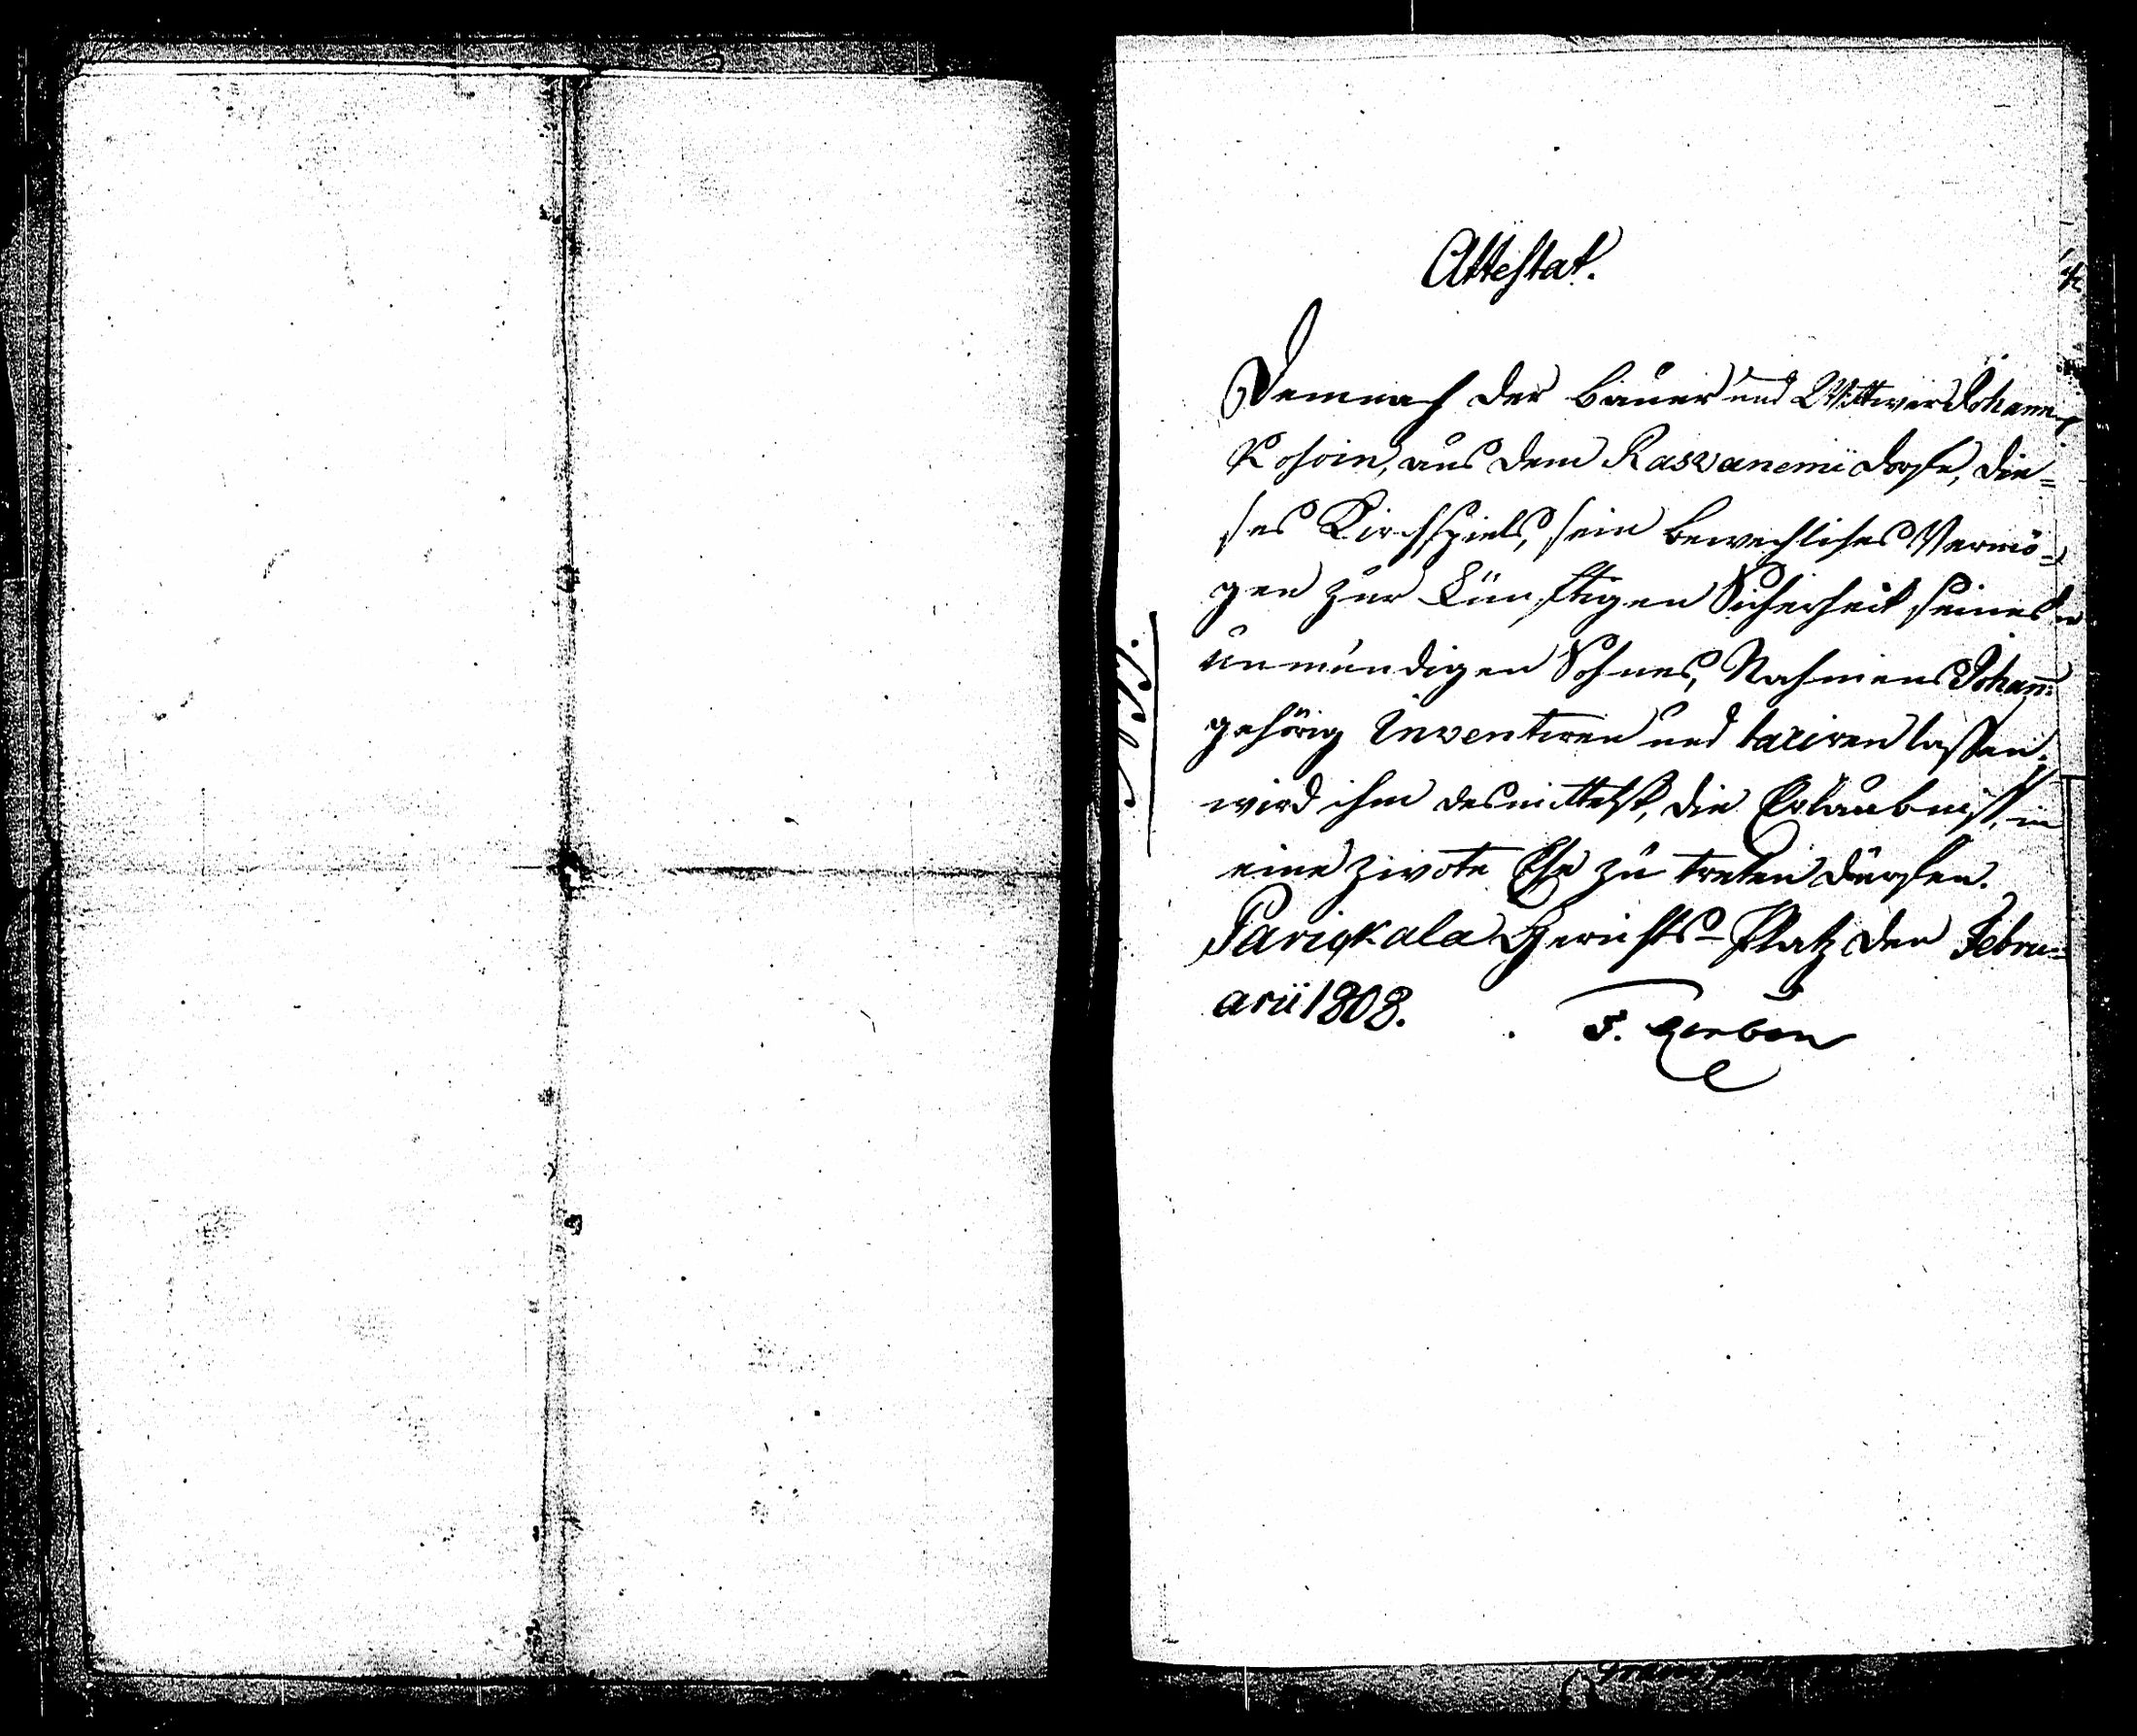 Attestat.
Demnach der Bauer und Wittwer Johann
Kosoin, aus dem Rasvaniemi dorfe, die=
ses Kirchspiels, sein bewechliches Vermö=
gen zur künftigen Sicherheit seines
unmündigen Sohnes, Nahmens Johann
gehörig Inventiren und taxiren lassen,
wird ihm desmittelst, die Erlaubniss, in
eine zwote Ehe zu treten dürfen.
Parikkala Gerichts-Platz den Febru=
arii 1808.
F. Gerbon